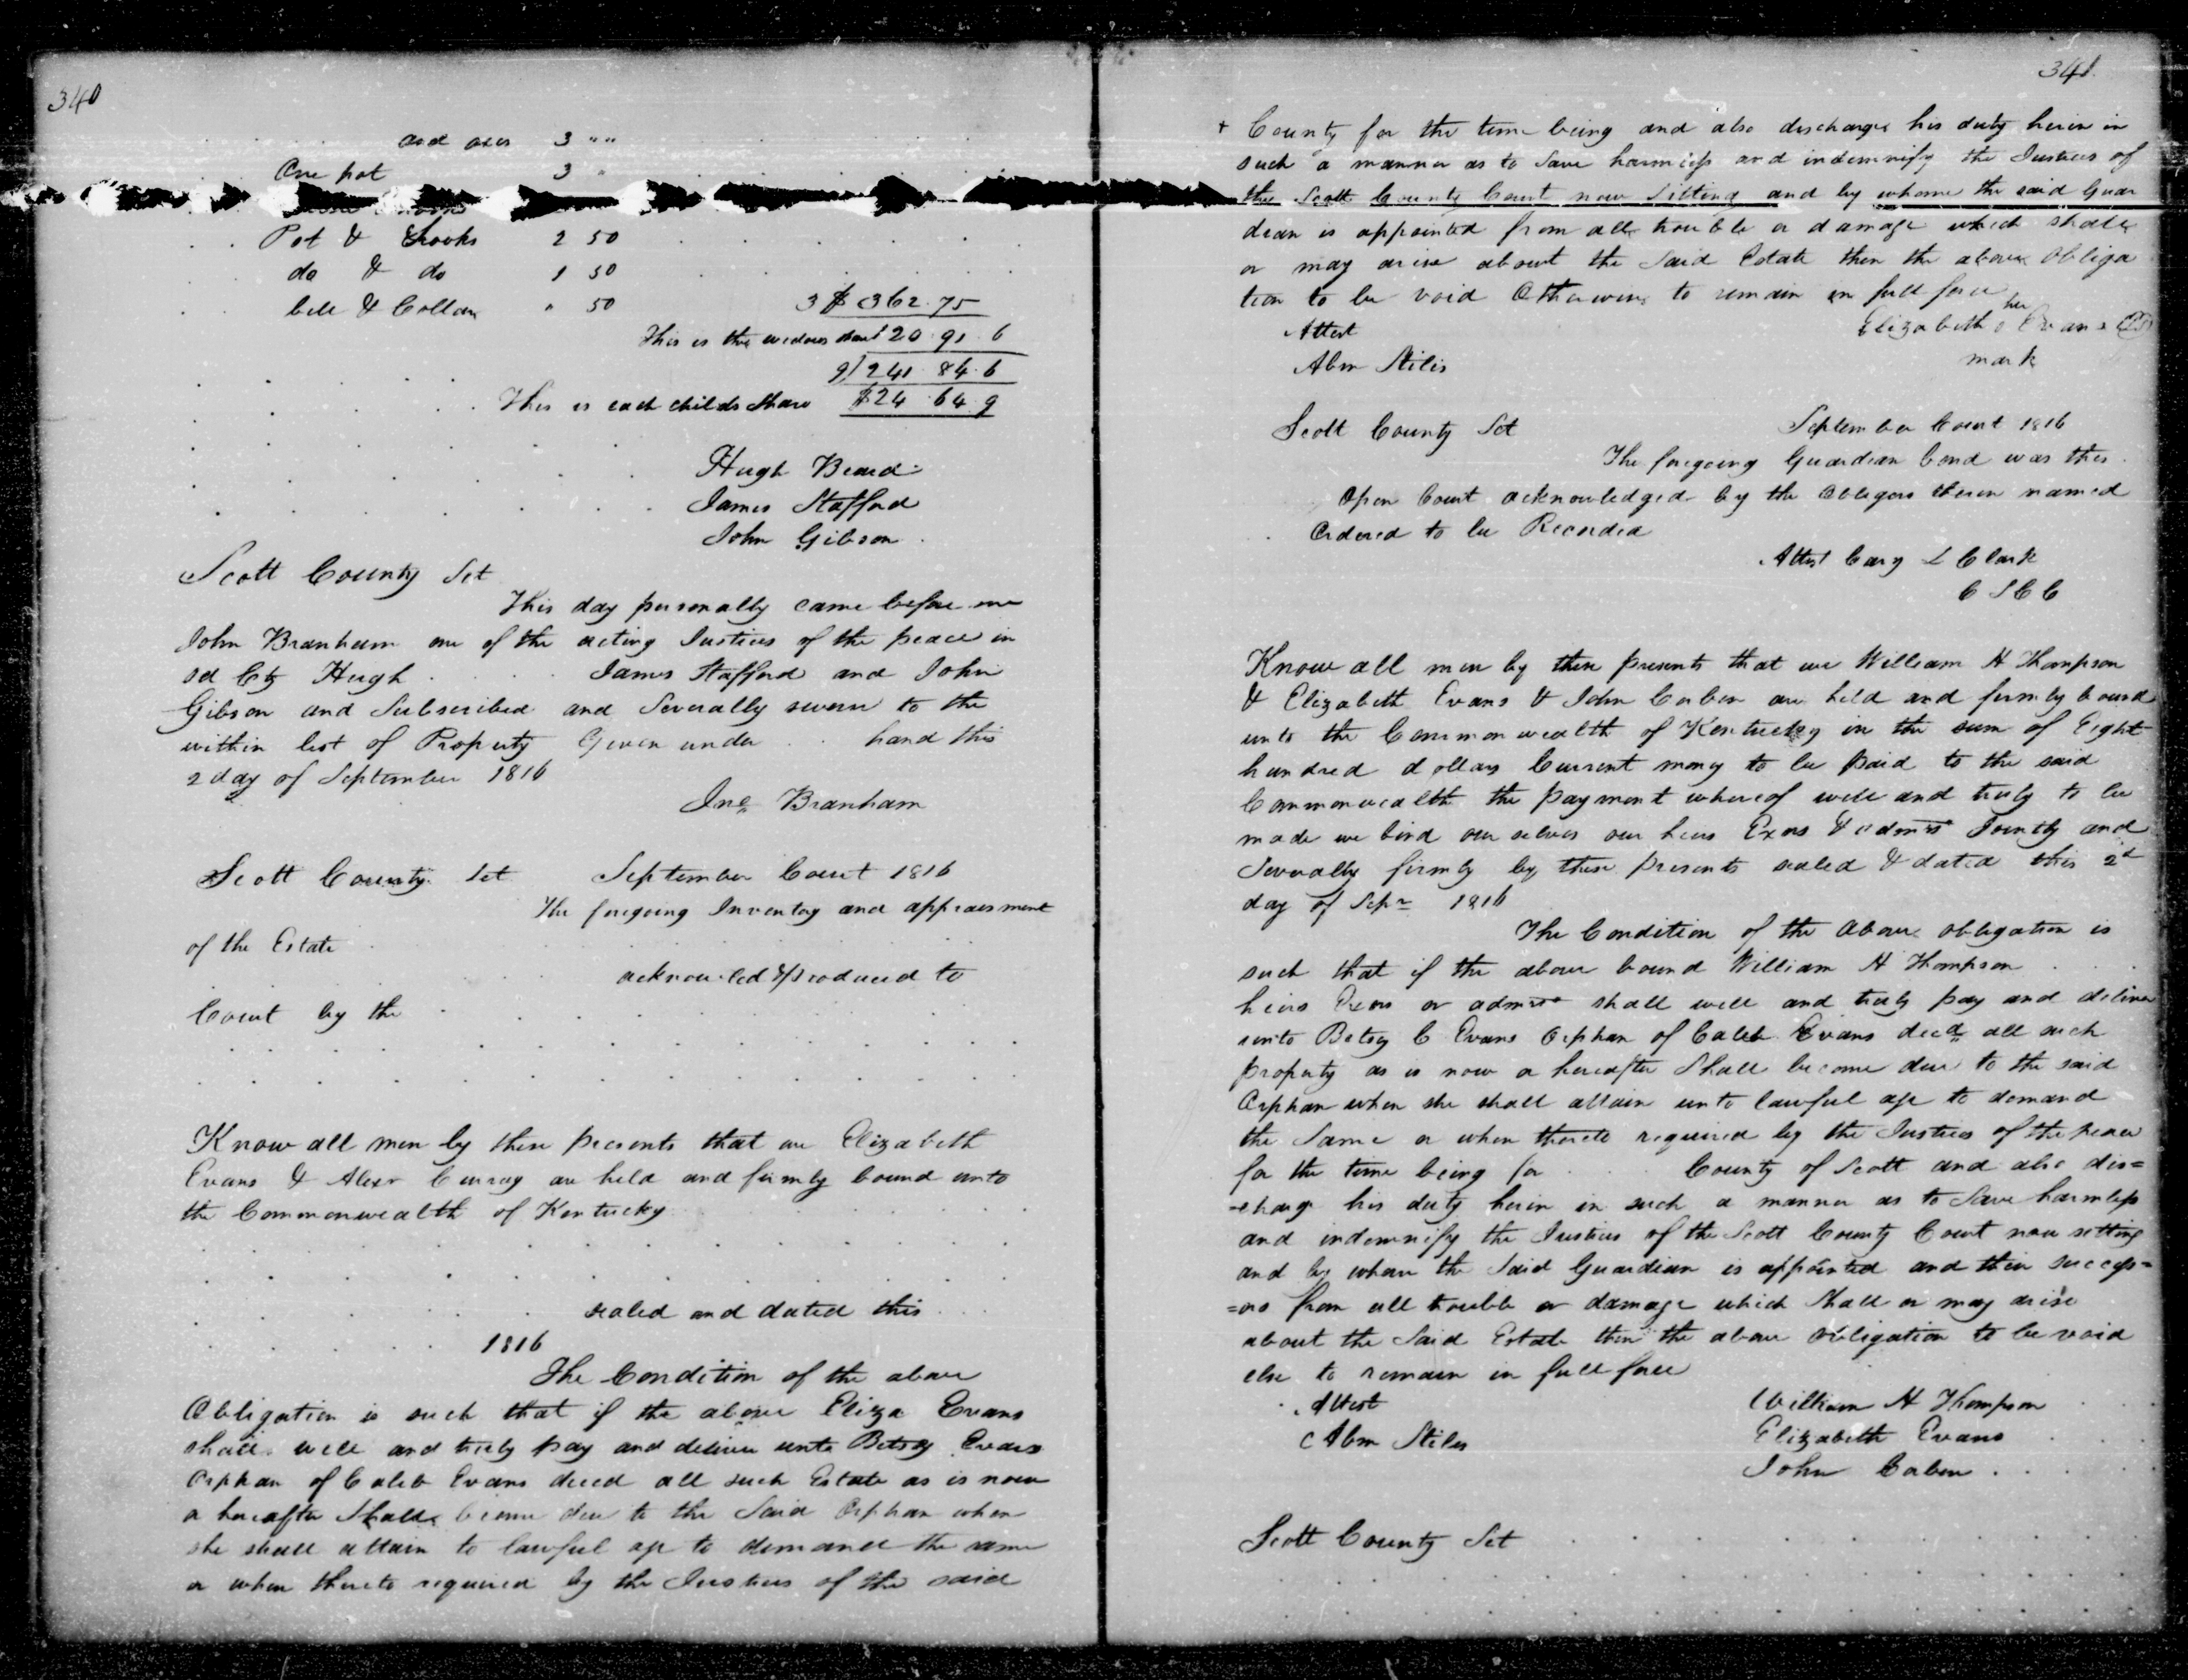 340
and axes 3 " "
One pot 3 "
Pot & Hooks 2 50
do & do 1 50
bell & Collar " 50 3 $ 362.75
This is the widows shear 120.91.6
9) 241.84.6
This is each childs Share $24.64.9
Hugh Beard
James Stafford
John Gibson
Scott County Sct
This day personally came before me
John Branham one of the acting Justices of the peace in
sd Cty Hugh . . . James Stafford and John
Gibson and Subscribed and Severally sworn to the
within list of Property Given under . . hand this
2 day of September 1816
Jno Branham
Scott County Sct September Court 1816
The foregoing Inventory and appraisment
of the Estate
acknowled & produced to
Court by the
Know all men by these presents that we Elizabeth
Evans & Alexr Curray are held and firmly bound unto
the Commonwealth of Kentucky
sealed and dated this
1816
The Condition of the above
Obligation is such that if the above Eliza Evans
shall well and truly pay and deliver unto Betsy Evans
Orphan of Caleb Evans deced all such Estate as is now
or hereafter Shall become due to the Said Orphan when
she shall attain to lawful age to demand the same
or when thereto required by the Justices of the said
341
+ County for the time being and also discharge his duty herein in
such a manner as to Save harmless and indemnify the Justices of
the Scott County Court now Sitting and by whome the said Guar
dian is appointed from all trouble or damage which shall
or may arise about the Said Estate then the above Obliga
tion to be void Otherwise to remain in full force
her
Attest Elizabeth Evans
Abm Stiles mark
Scott County Sct September Court 1816
The foregoing Guardian bond was this
Open Court acknowledged by the Obligors therein named
Ordered to be Recorded
Attest Cary L Clark
C S C C
Know all men by these presents that we William H Thompson
& Elizabeth Evans & John Corben are held and firmly bound
unto the Commonwealth of Kentucky in the sum of Eight
hundred dollars Current money to be paid to the said
Commonwealth the payment whereof well and truly to be
made we bind our selves our heirs Exors & admrs Jointly and
Severally firmly by these presents sealed & dated this 2d
day of Sepr 1816
The Condition of the above obligation is
such that if the above bound William H Thompson
heirs Exors or admrs shall well and truly pay and deliver
unto Betsy C Evans Orphan of Caleb Evans decd all such
property as is now or hereafter Shall become due to the said
Orphan when she shall attain unto lawful age to demand
the Same or when thereto required by the Justices of the peace
for the time being for . . County of Scott and also dis=
=charge his duty herein in such a manner as to Save harmless
and indemnify the Justices of the Scott County Court now setting
and by whom the Said Guardian is appointed and their success=
=ors from all trouble or damage which Shall or may arise
about the Said Estate then the above obligation to be void
else to remain in full force
Attest William H Thompson
Abm Stiles Elizabeth Evans
John Corben
Scott County Sct